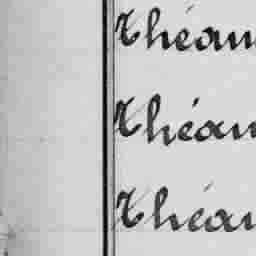 Théau
Théau
Théau